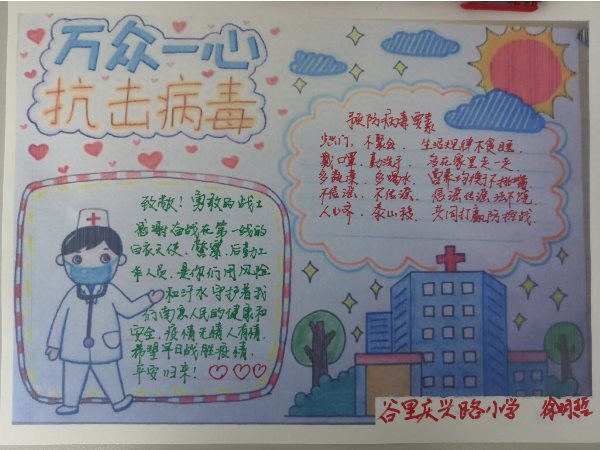 万众一心
抗击病毒
致敬！勇敢的战士
感谢奋战在第一线的
白衣天使、警察、后勤工
作人员，是你们用风险
和汗水守护着我
们南京人民的健康和
安全，疫情无情人有情，
希望早日战胜疫情，
平安归来！
预防病毒要素
少出门，不聚会，生活规律不贪睡，
戴口罩，勤洗手，多在家里走一走，
多蔬果，多喝水，营养均衡不挑嘴，
不信谣，不传谣，信谣传谣法不饶，
人心齐，泰山移，共同打赢防控战。
谷里庆兴路小学 徐明哲